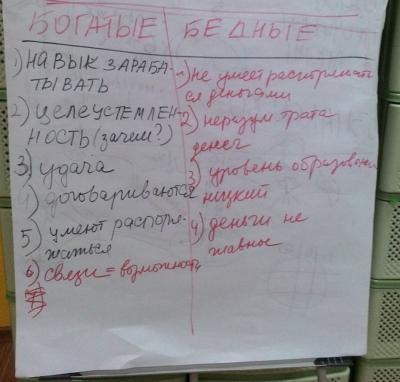 БОГАТЫЕ
1) НАВЫК ЗАРАБА-
ТЫВАТЬ
2) ЦЕЛЕУСТЕМЛЕН-
НОСТЬ (зачем?)
3) удача
4) договариваются
5) умеют распоря-
жаться
6) связи = возможность
БЕДНЫЕ
1) не умеет распоряжать
ся деньгами
2) неразум. трата
денег
3) уровень образован
ниский
4) деньги не
главное